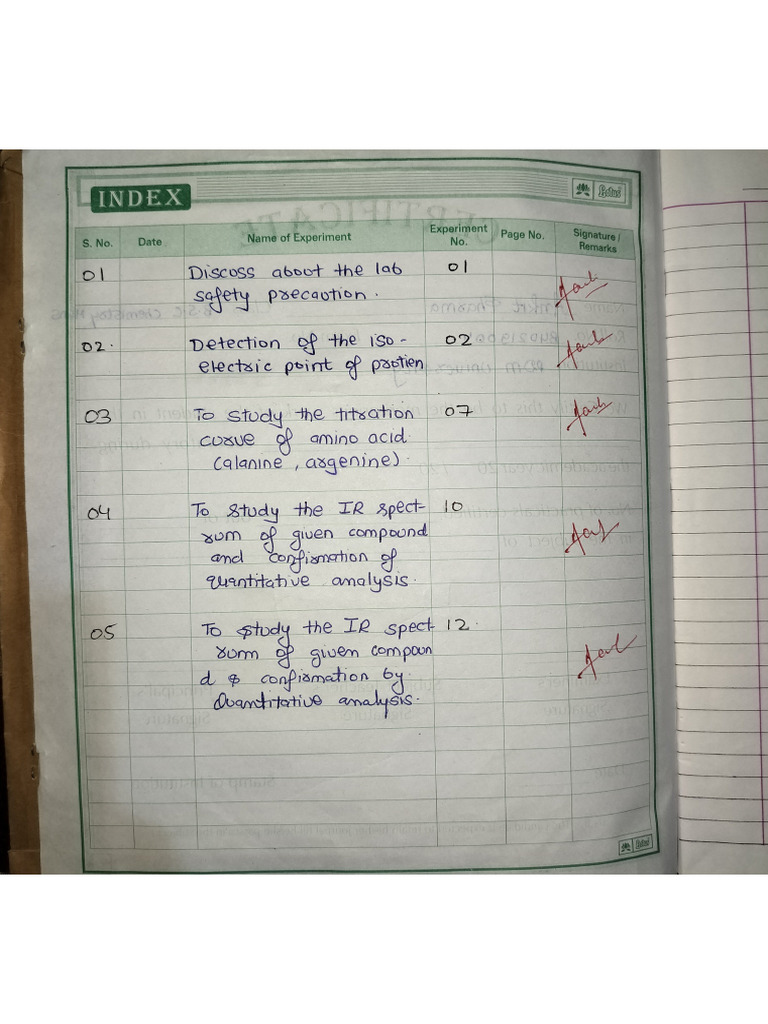 INDEX
Lotus
S. No. Date Name of Experiment Experiment No. Page No. Signature / Remarks
01 Discoss about the lab 01
safety precaution.
02. Detection of the iso- 02
electric point of protien
03 To study the titration 07
curve of amino acid
(alanine, argenine).
04 To study the IR spect- 10
rum of given compound
and confirmation of
quantitative analysis.
05 To study the IR spect- 12.
rum of given compoun
d & confirmation by
Quantitative analysis.
Lotus